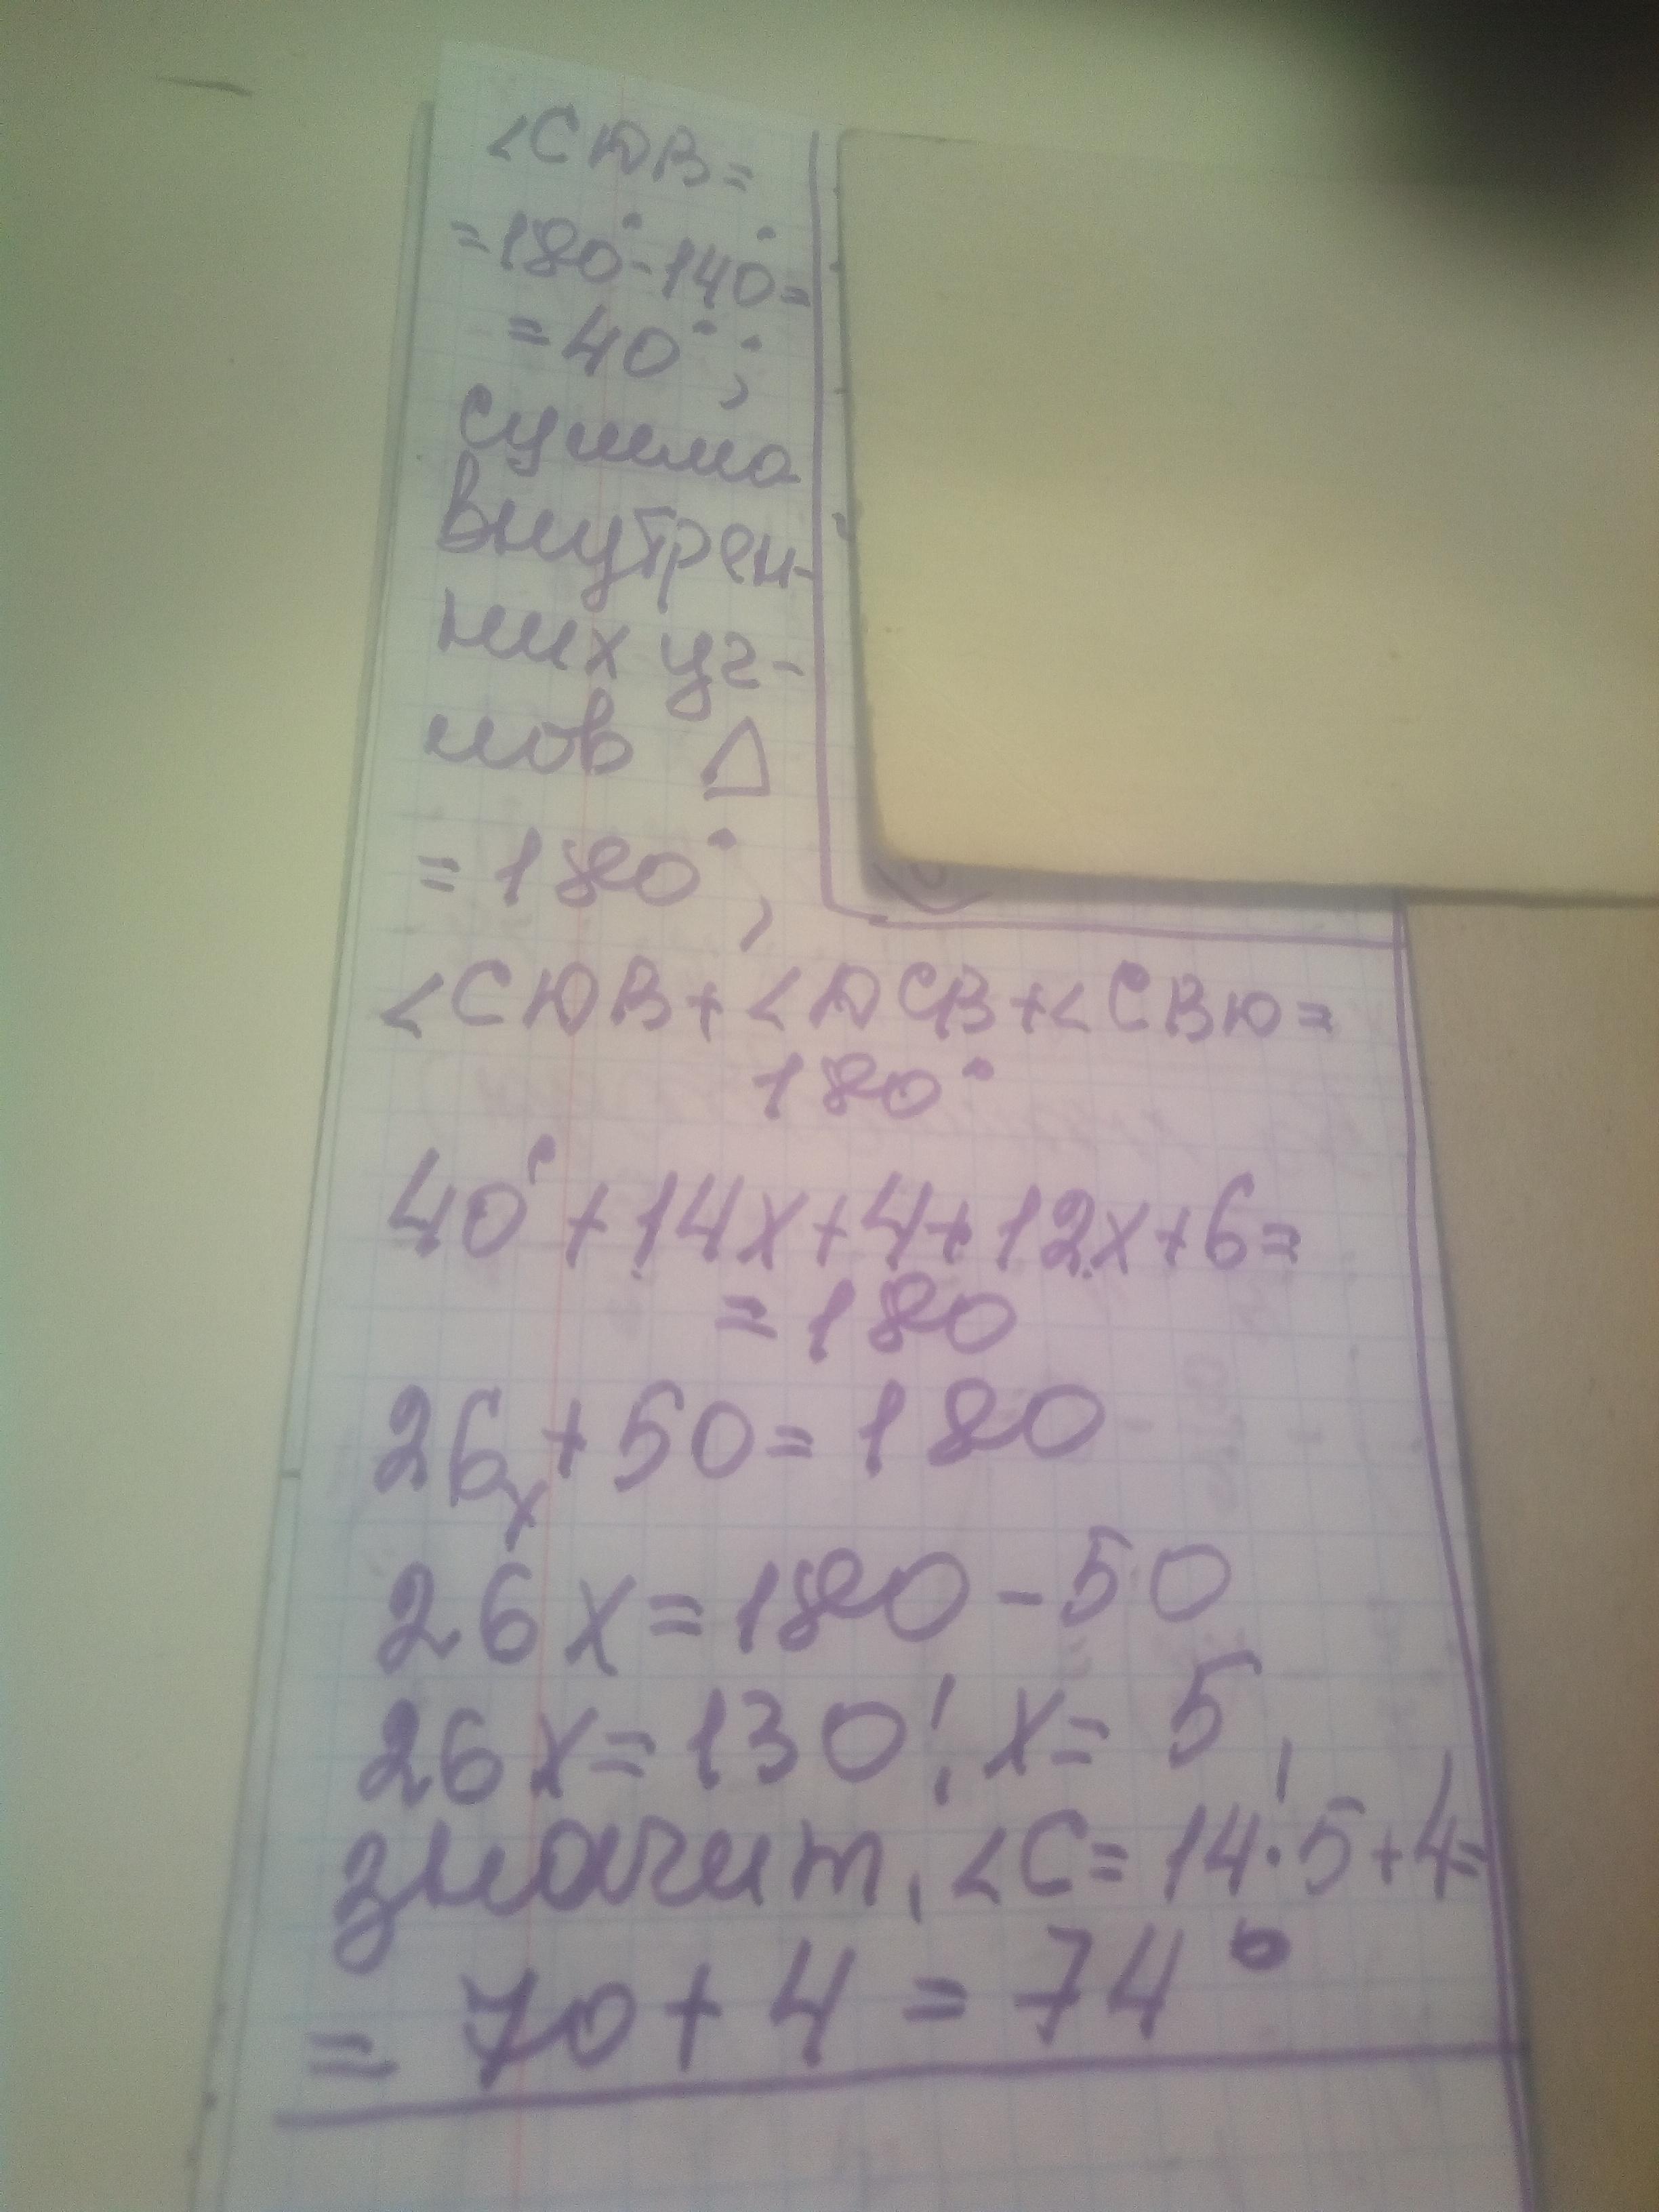 <СДВ=
=180°-140°=
=40°;
сумма
внутрен-
них уг-
лов △
=180°,
<СДВ+<ДСВ+<СВД=
180°
40°+14х+4+12х+6=
=180
26х+50=180
26х=180-50
26х=130; х=5,
значит, <С=14·5+4=
=70+4=74°